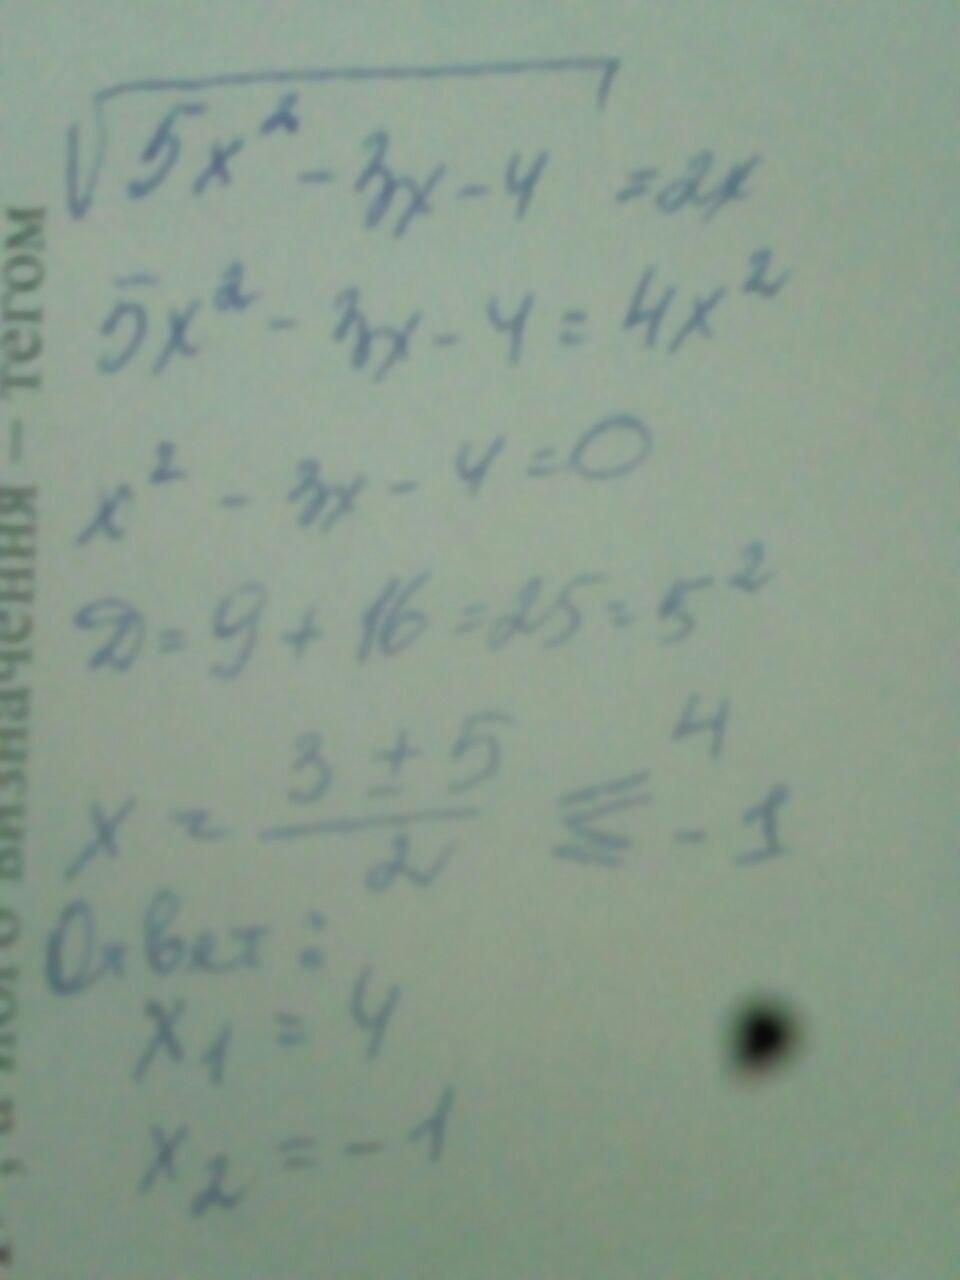 √(5x² - 3x - 4) = 2x
5x² - 3x - 4 = 4x²
x² - 3x - 4 = 0
D = 9 + 16 = 25 = 5²
x = (3 ± 5)/2 4
- 1
Ответ:
x₁ = 4
x₂ = - 1
визначення – тегом